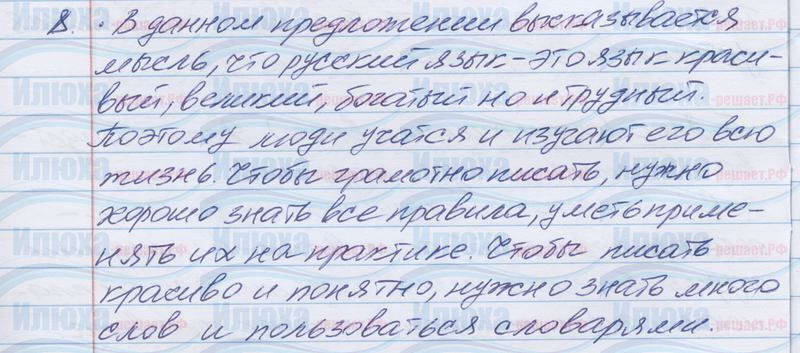 8. · В данном предложении высказывается
мысль, что русский язык - это язык краси-
вый, великий, богатый но и трудный.
Поэтому люди учатся и изучают его всю
жизнь. Чтобы грамотно писать, нужно
хорошо знать все правила, уметь приме-
нять их на практике. Чтобы писать
красиво и понятно, нужно знать много
слов и пользоваться словарями.